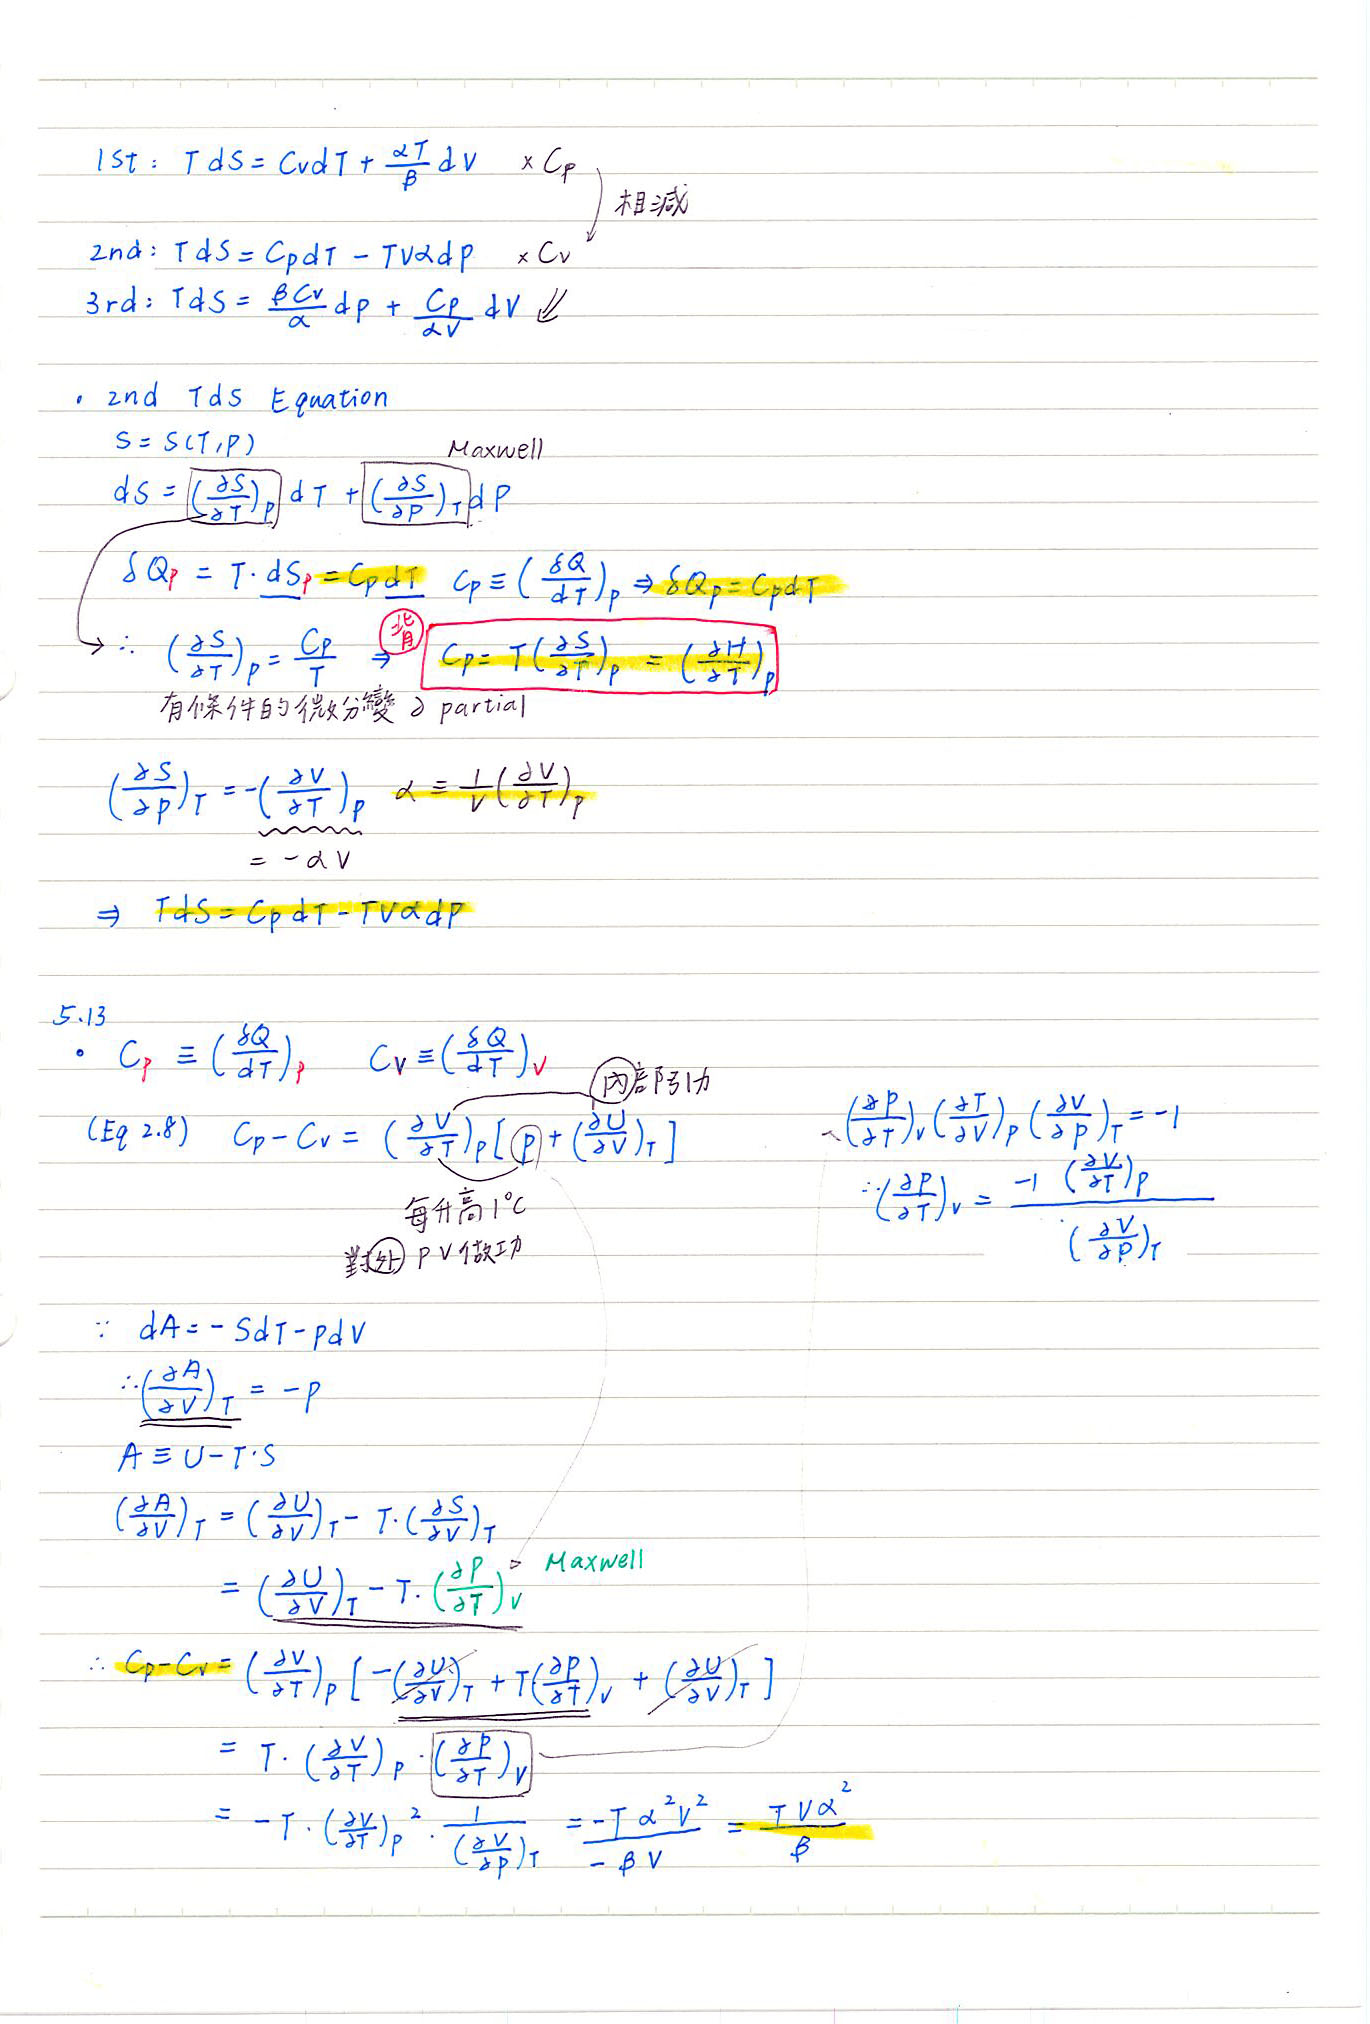 1st: TdS = CvdT + αT/β dV × Cp
相減
2nd: TdS = CpdT − TVαdP × Cv
3rd: TdS = βCv/α dP + Cp/αV dV
• 2nd TdS Equation
S = S(T,P)
Maxwell
dS = (∂S/∂T)P dT + (∂S/∂P)T dP
δQP = T·dSP = CpdT Cp ≡ (δQ/dT)P ⇒ δQP = CpdT
∴ (∂S/∂T)P = CP/T ⇒ 背 CP = T(∂S/∂T)P = (∂H/∂T)P
有條件的微分變 ∂ partial
(∂S/∂P)T = −(∂V/∂T)P α ≡ 1/V (∂V/∂T)P
= −αV
⇒ TdS = CpdT − TVαdP
5.13
• CP ≡ (δQ/dT)P CV ≡ (δQ/dT)V
內部吸引力
(Eq 2.8) Cp − Cv = (∂V/∂T)P [P + (∂U/∂V)T]
每升高1°C
對外 PV做功
(∂P/∂T)V (∂T/∂V)P (∂V/∂P)T = −1
∴ (∂P/∂T)V = −1 (∂V/∂T)P / (∂V/∂P)T
∵ dA = −SdT − PdV
∴ (∂A/∂V)T = −P
A ≡ U − T·S
(∂A/∂V)T = (∂U/∂V)T − T·(∂S/∂V)T
= (∂U/∂V)T − T·(∂P/∂T)V Maxwell
∴ Cp − Cv = (∂V/∂T)P [−(∂U/∂V)T + T(∂P/∂T)V + (∂U/∂V)T]
= T·(∂V/∂T)P·(∂P/∂T)V
= −T·(∂V/∂T)P²·1/(∂V/∂P)T = −Tα²V²/−βV = TVα²/β